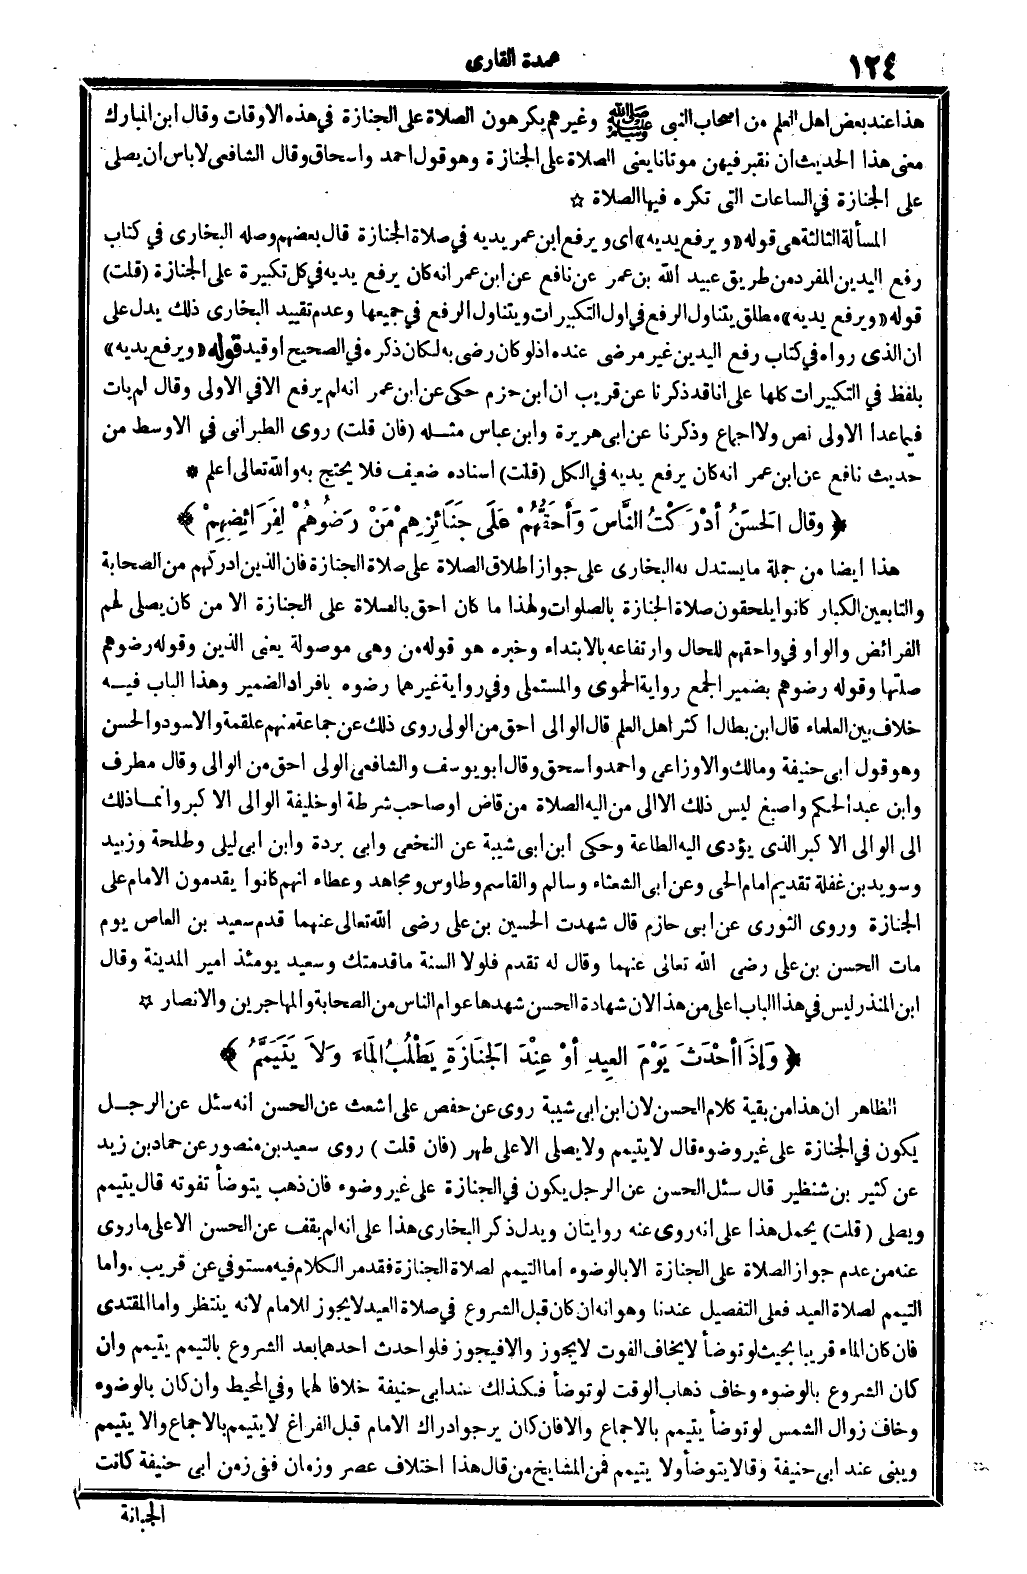 ١٢٤
عمدة القارى
هذا عند بعض اهل العلم من اصحاب النبى ﷺ وغيرهم يكرهون الصلاة على الجنازة في هذه الاوقات وقال ابن المبارك
معنى هذا الحديث ان نقبر فيهن موتانا يعنى الصلاة على الجنازة وهو قول احمد واسحاق وقال الشافعى لا باس ان يصلى
على الجنازة في الساعات التى تكره فيها الصلاة ☆
المسألة الثالثة هى قوله «ويرفع يديه» اى ويرفع ابن عمر يديه في صلاة الجنازة قال بعضهم وصله البخارى في كتاب
رفع اليدين المفرد من طريق عبيد الله بن عمر عن نافع عن ابن عمر انه كان يرفع يديه في كل تكبيرة على الجنازة (قلت)
قوله «ويرفع يديه» مطلق يتناول الرفع في اول التكبيرات ويتناول الرفع في جميعها وعدم تقييد البخارى ذلك يدل على
ان الذى رواه في كتاب رفع اليدين غير مرضى عنده اذ لو كان رضى به لكان ذكره في الصحيح او قيد قوله «ويرفع يديه»
بلفظ في التكبيرات كلها على انا قد ذكرنا عن قريب ان ابن حزم حكى عن ابن عمر انه لم يرفع الا في الاولى وقال لم يات
فيما عدا الاولى نص ولا اجماع وذكرنا عن ابى هريرة وابن عباس مثله (فان قلت) روى الطبرانى في الاوسط من
حديث نافع عن ابن عمر انه كان يرفع يديه في الكل (قلت) اسناده ضعيف فلا يحتج به والله تعالى اعلم *
﴿ وقال الحَسَنُ أدْرَكْتُ النَّاسَ وَأحَقُّهُمْ عَلَى جَنَائِزِهِمْ مَنْ رَضُوهُمْ لِفَرَائِضِهِمْ ﴾
هذا ايضا من جملة ما يستدل به البخارى على جواز اطلاق الصلاة على صلاة الجنازة فان الذين ادركهم من الصحابة
والتابعين الكبار كانوا يلحقون صلاة الجنازة بالصلوات ولهذا ما كان احق بالصلاة على الجنازة الا من كان يصلى لهم
الفرائض والواو في واحقهم للحال وارتفاعه بالابتداء وخبره هو قوله من وهى موصولة يعنى الذين وقوله رضوهم
صلتها وقوله رضوهم بضمير الجمع رواية الحموى والمستملى وفي رواية غيرهما رضوه بافراد الضمير وهذا الباب فيه
خلاف بين العلماء قال ابن بطال اكثر اهل العلم قال الوالى احق من الولى روى ذلك عن جماعة منهم علقمة والاسود والحسن
وهو قول ابى حنيفة ومالك والاوزاعى واحمد واسحق وقال ابو يوسف والشافعى الولى احق من الوالى وقال مطرف
وابن عبد الحكم واصبغ ليس ذلك الا الى من اليه الصلاة من قاض او صاحب شرطة او خليفة الوالى الاكبر وانما ذلك
الى الوالى الاكبر الذى يؤدى اليه الطاعة وحكى ابن ابى شيبة عن النخعى وابى بردة وابن ابى ليلى وطلحة وزبيد
وسويد بن غفلة تقديم امام الحى وعن ابى الشعثاء وسالم والقاسم وطاوس ومجاهد وعطاء انهم كانوا يقدمون الامام على
الجنازة وروى الثورى عن ابى حازم قال شهدت الحسين بن على رضى الله تعالى عنهما قدم سعيد بن العاص يوم
مات الحسن بن على رضى الله تعالى عنهما وقال له تقدم فلولا السنة ما قدمتك وسعيد يومئذ امير المدينة وقال
ابن المنذر ليس في هذا الباب اعلى من هذا لان شهادة الحسن شهدها عوام الناس من الصحابة والمهاجرين والانصار ☆
﴿ وَإذَا أحْدَثَ يَوْمَ العِيدِ أوْ عِنْدَ الجَنَازَةِ يَطْلُبُ المَاءَ وَلاَ يَتَيَمَّمُ ﴾
الظاهر ان هذا من بقية كلام الحسن لان ابن ابى شيبة روى عن حفص على اشعث عن الحسن انه سئل عن الرجل
يكون في الجنازة على غير وضوء قال لا يتيمم ولا يصلى الا على طهر (فان قلت) روى سعيد بن منصور عن حماد بن زيد
عن كثير بن شنظير قال سئل الحسن عن الرجل يكون في الجنازة على غير وضوء فان ذهب يتوضأ تفوته قال يتيمم
ويصلى (قلت) يحمل هذا على انه روى عنه روايتان ويدل ذكر البخارى هذا على انه لم يقف عن الحسن الا على ما روى
عنه من عدم جواز الصلاة على الجنازة الا بالوضوء اما التيمم لصلاة الجنازة فقد مر الكلام فيه مستوفي عن قريب . واما
التيمم لصلاة العيد فعلى التفصيل عندنا وهو انه ان كان قبل الشروع في صلاة العيد لا يجوز للامام لانه ينتظر واما المقتدى
فان كان الماء قريبا بحيث لو توضأ لا يخاف الفوت لا يجوز والا فيجوز فلو احدث احدهما بعد الشروع بالتيمم يتيمم وان
كان الشروع بالوضوء وخاف ذهاب الوقت لو توضأ فكذلك عند ابى حنيفة خلافا لهما وفي المحيط وان كان بالوضوء
وخاف زوال الشمس لو توضأ يتيمم بالاجماع والا فان كان يرجو ادراك الامام قبل الفراغ لا يتيمم بالاجماع والا يتيمم
ويبنى عند ابى حنيفة وقالا يتوضأ ولا يتيمم فمن المشايخ من قال هذا اختلاف عصر وزمان ففى زمن ابى حنيفة كانت
الجبانة